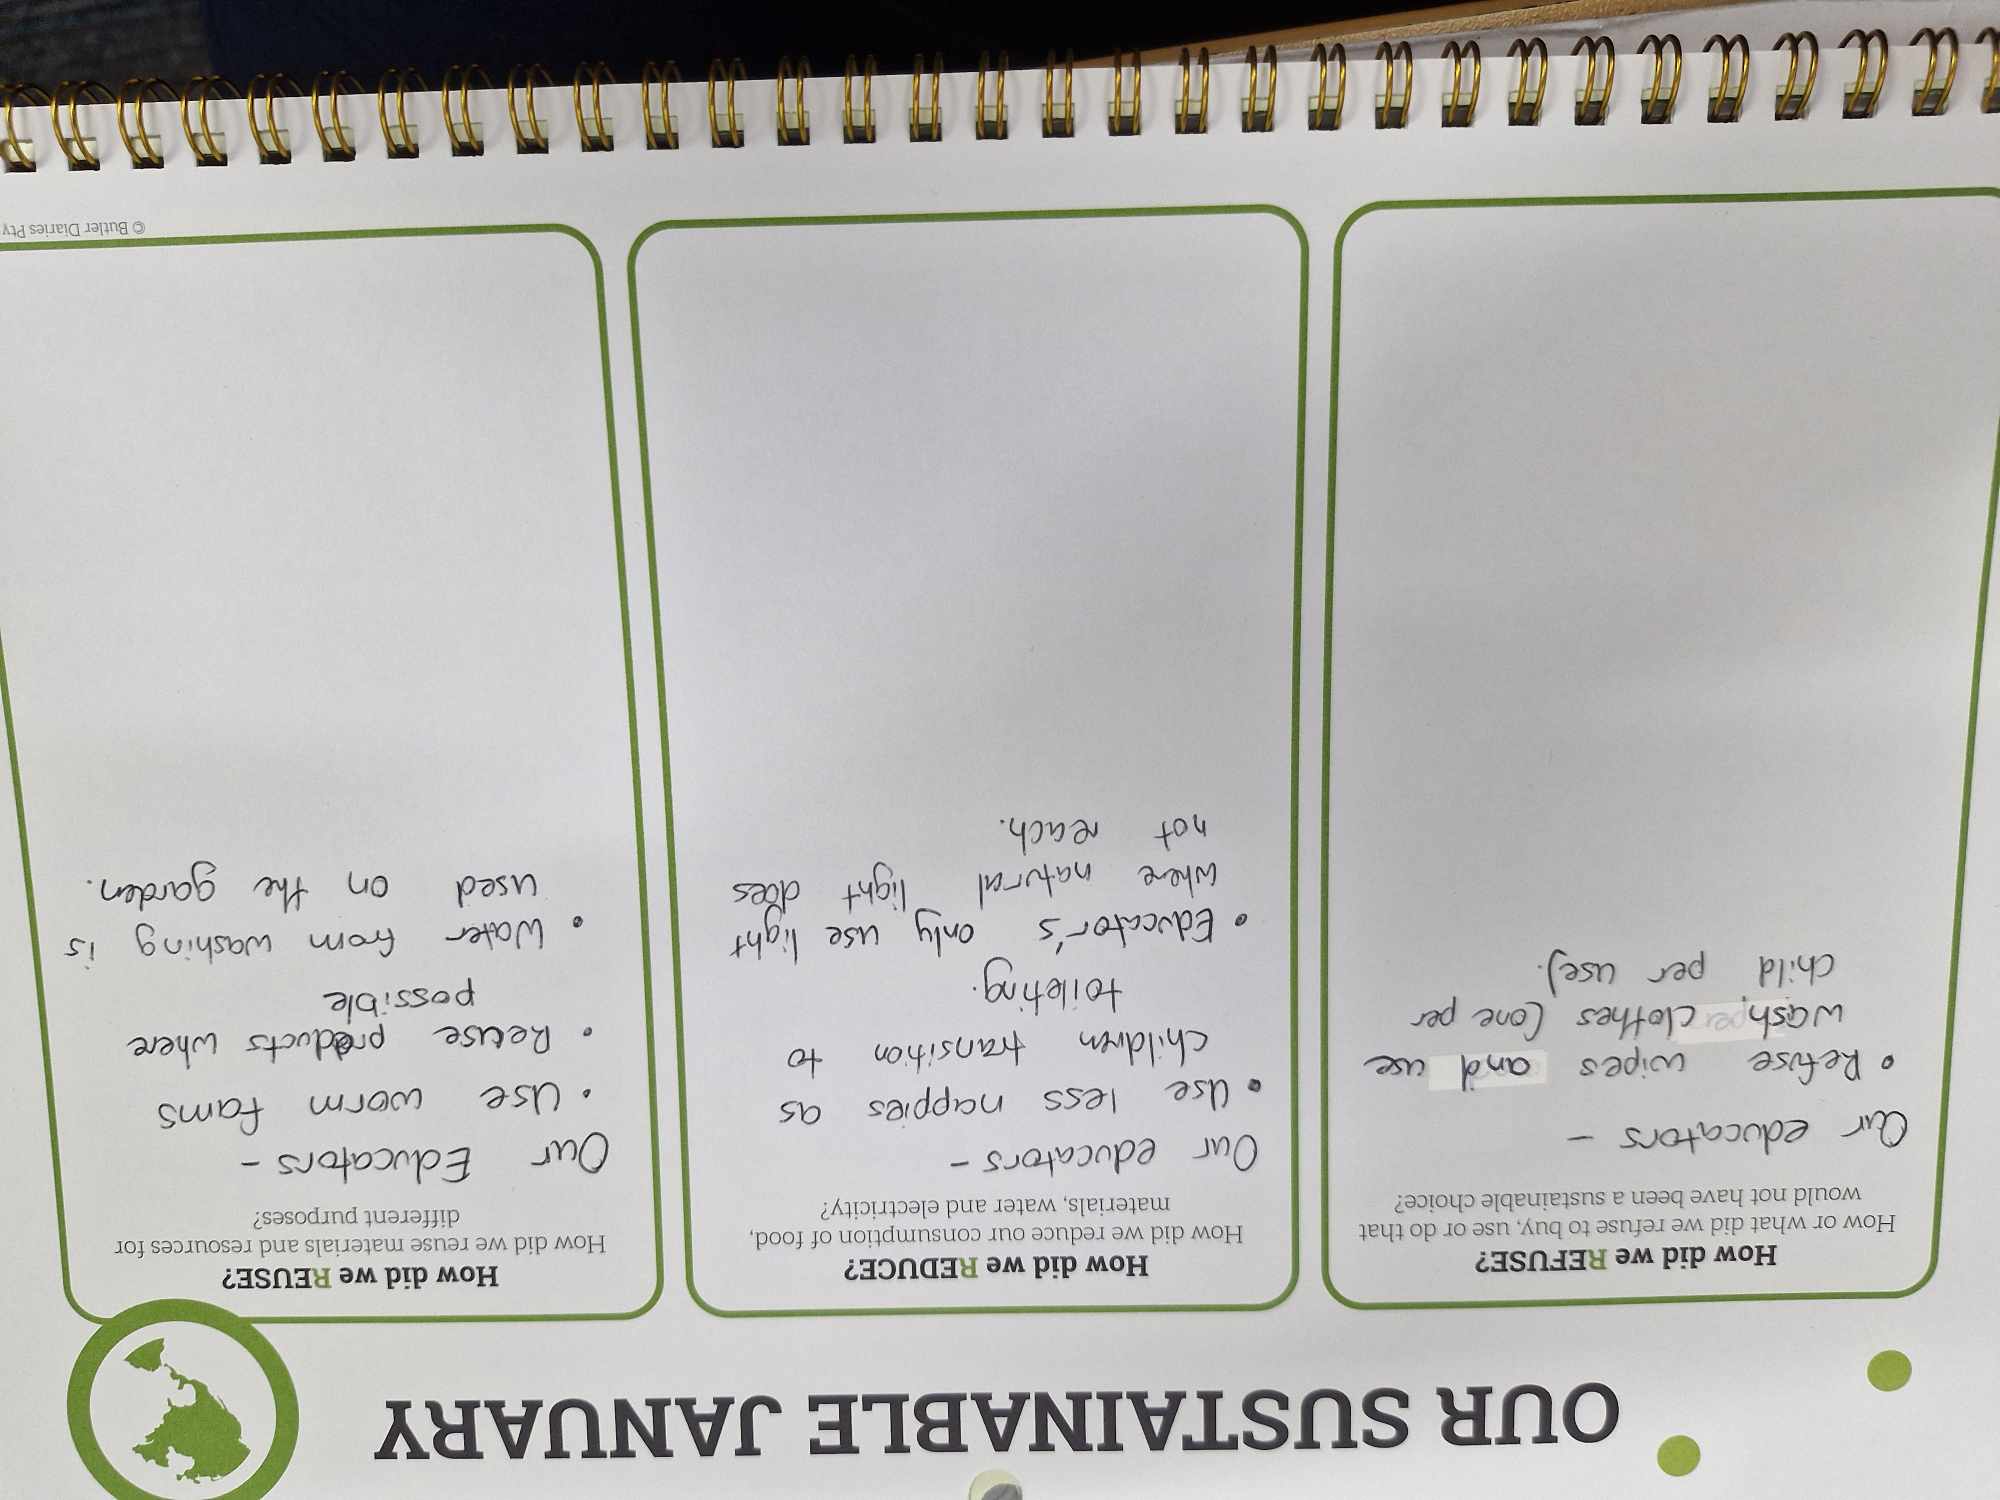 OUR SUSTAINABLE JANUARY
How did we REFUSE?
How or what did we refuse to buy, use or do that
would not have been a sustainable choice?
Our educators -
• Refuse wipes and use
wash clothes (one per
child per use).
How did we REDUCE?
How did we reduce our consumption of food,
materials, water and electricity?
Our educators -
• Use less nappies as
children transition to
toileting.
• Educator's only use light
where natural light does
not reach.
How did we REUSE?
How did we reuse materials and resources for
different purposes?
Our Educators -
• Use worm fams
• Reuse products where
possible
• Water from washing is
used on the garden.
© Butler Diaries Pty